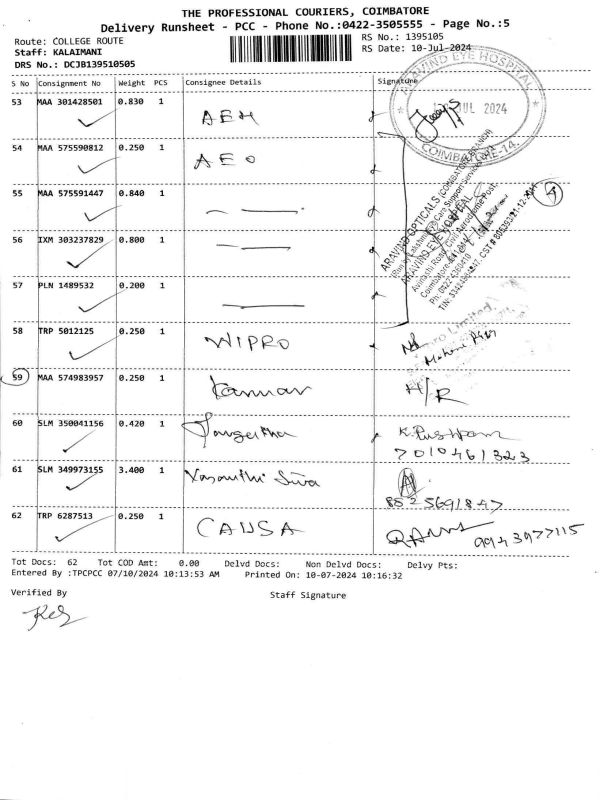 THE PROFESSIONAL COURIERS, COIMBATORE
Delivery Runsheet - PCC - Phone No.:0422-3505555 - Page No.:5
Route: COLLEGE ROUTE
RS No.: 1395105
Staff: KALAIMANI
RS Date: 10-Jul-2024
DRS No.: DCJB139510505
S No Consignment No Weight PCS Consignee Details Signature
53 MAA 301428501 0.830 1 AEH
54 MAA 575590812 0.250 1 AEO
55 MAA 575591447 0.840 1
56 IXM 303237829 0.800 1
57 PLN 1489532 0.200 1
58 TRP 5012125 0.250 1 WIPRO
59 MAA 574983957 0.250 1 Kannan H/R
60 SLM 350041156 0.420 1 Sangeetha K. Pushpam
7010461323
61 SLM 349973155 3.400 1 Vasanthi Siva
8525691847
62 TRP 6287513 0.250 1 CAUSA 9943977115
ARAVIND EYE HOSPITAL
JUL 2024
COIMBATORE-14.
ARAVIND OPTICALS (COIMBATORE BRANCH)
ARAVIND EYE HOSPITAL
Avinashi Road, Civil Aerodrome Post,
4
Tot Docs: 62 Tot COD Amt: 0.00 Delvd Docs: Non Delvd Docs: Delvy Pts:
Entered By :TPCPCC 07/10/2024 10:13:53 AM Printed On: 10-07-2024 10:16:32
Verified By
Staff Signature